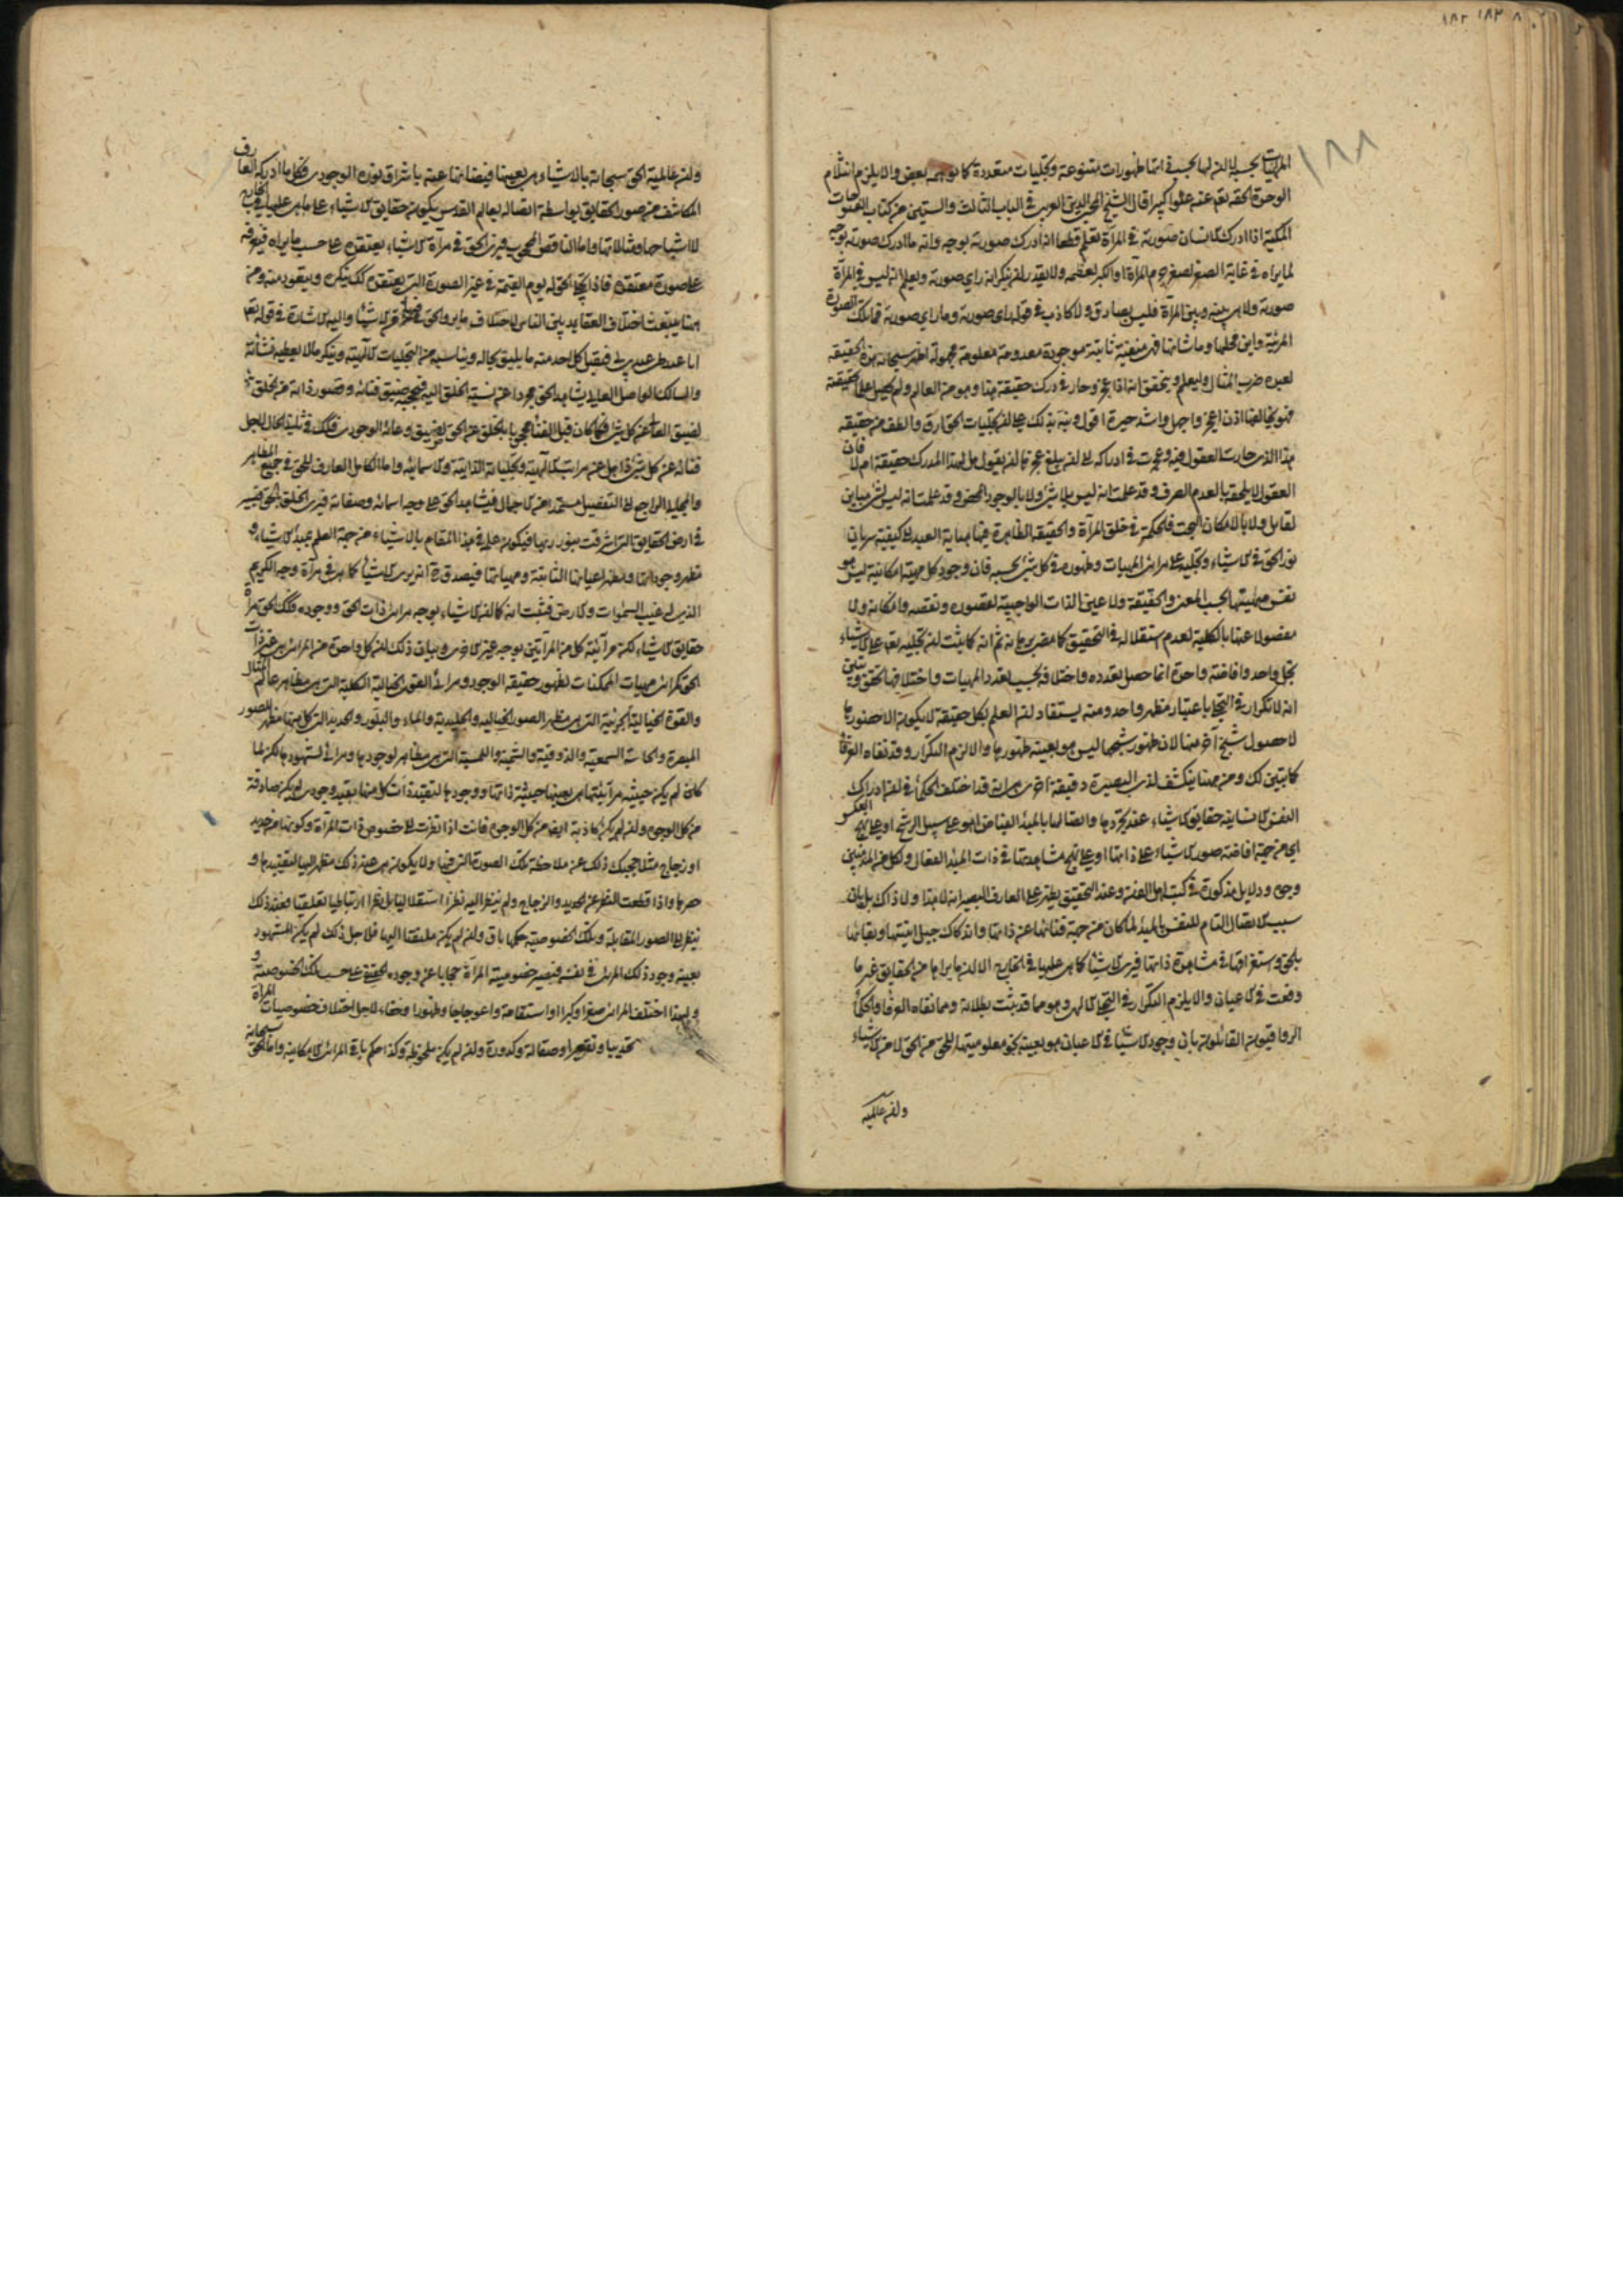 ١٨٢ ١٨٣ ٨
١٨٨
المرئيات بحسبه لا ان لها بحسب ذاتها ظهورات متنوعة وتجليات متعددة كما توهمه بعض والا يلزم انثلام
الوحدة الحقة تعالى عنه علوا كبيرا قال الشيخ محيي الدين العربي في الباب الثالث والستين من كتاب الفتوحات
المكية اذا ادرك الانسان صورته في المرآة يعلم قطعا انه ادرك صورته بوجه وانه ما ادرك صورته بوجه
لما يراه في غاية الصغر لصغر جرم المرآة او الكبر لعظمه ولا يقدر ان ينكر انه راى صورته ويعلم انه ليس في المرآة
صورته ولا هي بينه وبين المرآة فليس بصادق ولا كاذب في قوله راى صورته وما راى صورته فما تلك الصورة
المرئية واين محلها وما شانها فهي منفية ثابتة موجودة معدومة معلومة مجهولة اظهر سبحانه هذه الحقيقة
لعبده ضرب المثال وليعلم ويتحقق انه اذا عجز وحار في درك حقيقة هذا وهو من العالم ولم يحصل علما بحقيقته
فهو بخالقها اذن اعجز واجهل واشد حيرة اقول ونبه بذلك على ان تجليات الحق ارق والطف من حقيقة
هذا الذي حارت العقول فيه وعجزت في ادراكه الى ان بلغ عجزها ان يقول هل لهذا المدرك حقيقة ام لا فان
العقول لا يلحقه بالعدم الصرف وقد علمت انه ليس بلا شيء ولا بالوجود المحض وقد علمت انه ليس بشيء مباين
لقابل ولا بالامكان البحت فالحكمة في خلق المرآة والحقيقة الظاهرة فيها هداية العبد الى كيفية سريان
نور الحق في الاشياء وتجليه على مرائي المهيات وظهوره في كل شيء بحسبه فان وجود كل مهية امكانية ليس هو
نفس مهيتها بحسب المعنى والحقيقة ولا عين الذات الواجبية لقصوره ونقصه وامكانه ولا
مفصولا عنها بالكلية لعدم استقلاله في التحقيق كما مضى برهانه ثم انه كما يثبت ان تجليه تعالى على الاشياء
تجل واحد وافاضة واحدة انما حصل تعدده واختلافه بحسب تعدد المهيات واختلافها تحقق وتبين
انه لا تكرار في التجلي باعتبار مظهر واحد ومنه يستفاد ان العلم بكل حقيقة لا يكون الا حضورها
لا حصول شبح آخر منها لان ظهور شبحها ليس هو بعينه ظهورها والا لزم التكرار وقد نفاه العرفاء
كما تبين لك ومن ههنا ينكشف لذي البصيرة دقيقة اخرى هي انه قد اختلف الحكماء في ان ادراك
النفس الانسانية حقايق الاشياء عند تجردها واتصالها بالمبدا الفياض اهو على سبيل الرشح او على نهج العكس
اي من جهة افاضة صور الاشياء على ذاتها او على نهج مشاهدتها في ذات المبدا الفعال ولكل من المذهبين
وجوه ودلايل مذكورة في كتب اهل الفن وعند التحقيق يظهر على العارف البصير انه لا هذا ولا ذاك بل بان
سبب الاتصال التام للنفس بالمبدا لما كان من جهة فنائها عن ذاتها واندكاك جبل انيتها وبقائها
بالحق واستغراقها في مشاهدة ذاتها فيرى الاشياء كما هي عليها في الخارج الا ان ما يراها من الحقايق غير ما
وقعت في الاعيان والا يلزم التكرار في التجلي الالهي وهو مما قد ثبت بطلانه ومما نفاه العرفا والحكما
الرواقيون القائلون بان وجود الاشيا في الاعيان هو بعينه نحو معلوميتها للحق من الحق لا من الاشياء
وان عالمية
ولان عالمية الحق سبحانه بالاشياء هي بعينها فيضانها عنه باشراق نوره الوجودي فكل ما ادركه العارف
المكاشف من صور الحقايق بواسطة اتصاله بعالم القدس يكون حقايق الاشياء على ما هي عليها في الخارج
لا اشباحها ومثالاتها واما الناقص المحجوب فيرى الحق في مرآة الاشياء ويعتقده على حسب ما يراه فيعرفه
على صورة معتقده فاذا تجلى الحق له يوم القيمة في غير الصورة التي يعتقده كك ينكره ويتعوذ منه ومن
ههنا ينبعث اختلاف العقايد بين الناس لاختلاف ما يرون الحق فيه من الاشيا واليه الاشارة في قوله تعالى
انا عند ظن عبدي بي فيقبل كل احد منه ما يليق بحاله ويناسبه من التجليات الالهية وينكر ما لا يعطيه نشاته
والسالك الواصل الفاني يشاهد الحق مجردا عن نسبة الخلق اليه فيحجبه ضيق فنائه وقصور ذاته عن الخلق
لضيق الفاني عن كل شيء فكما كان قبل الفناء محجوبا بالخلق عن الحق لضيق وعائه الوجودي فكك في ثاني الحال لاجل
فنائه عن كل شيء ذاهل عن مراتب الالهية وتجلياته الذاتية والاسمائية واما الكامل العارف للحق في جميع المظاهر
والمجالي الراجع الى التفصيل مستمدا من الاجمال فيشاهد الحق على وجه اسمائه وصفاته فيرى الخلق بالحق فيسير
في ارض الحقايق التي اشرقت بنور ربها فيكون علمه في هذا المقام بالاشياء من جهة العلم بمبدا الاشياء و
مظهر وجوداتها ومظهر اعيانها الثابتة ومهياتها فيصدق ح انه يرى الاشيا كما هي في مرآة وجهه الكريم
الذي له غيب السموات والارض فثبت انه كما ان الاشياء بوجه مرائي ذات الحق ووجوده فكك الحق مرآة
حقايق الاشياء لكن مرآتية كل من المرآتين بوجه غير الاخرى وبيان ذلك ان كل واحدة من المرائي هي غير ذات
الحق كمرائي مهيات الممكنات لظهور حقيقة الوجود ومرائي القوى الخيالية الكلية التي هي مظاهر عالم المثال
والقوة الخيالية الجزئية التي هي مظهر الصور الخيالية والجليدية والماء والبلور والحديد التي كل منها مظهر الصور
المبصرة والحاسة السمعية والذوقية والشمية واللمسية التي هي مظاهر لوجودها ومرائي لشهودها لكن لما
كان لم يكن حيثية مرآتيتها هي بعينها حيثية ذاتها ووجودها لتقيد ذات كل منها بقيد وجودي لم يكن صادقة
من كل الوجوه وان لم يكن كاذبة ايضا من كل الوجوه فانت اذا نظرت الى خصوص ذات المرآة وكونها من حديد
او زجاج مثلا حجبك ذلك عن ملاحظة تلك الصورة التي فيها ولا يكون هي عند ذلك مظهرا لها لتقيدها و
حصرها واذا قطعت النظر عن الحديد والزجاج ولم تنظر اليه نظرا استقلاليا بل نظرا ارتباطيا تعلقيا فعند ذلك
تنظر الى الصور المقابلة وتلك الخصوصية حكمها باق وان لم يكن ملتفتا اليها فلاجل ذلك لم يكن المشهود
بعينه وجود ذلك المرئي في نفسه فيصير خصوصية المرآة حجابا عن وجوده الحقيقي على حسب تلك الخصوصية و
ولهذا اختلف المرائي صغرا وكبرا واستقامة واعوجاجا وظهورا وخفاء لاجل اختلاف خصوصيات المرآة
تحديبا وتقعيرا وصقالة وكدورة وان لم يكن ملحوظة وكذا حكم باقي المرائي الامكانية واما الحق سبحانه